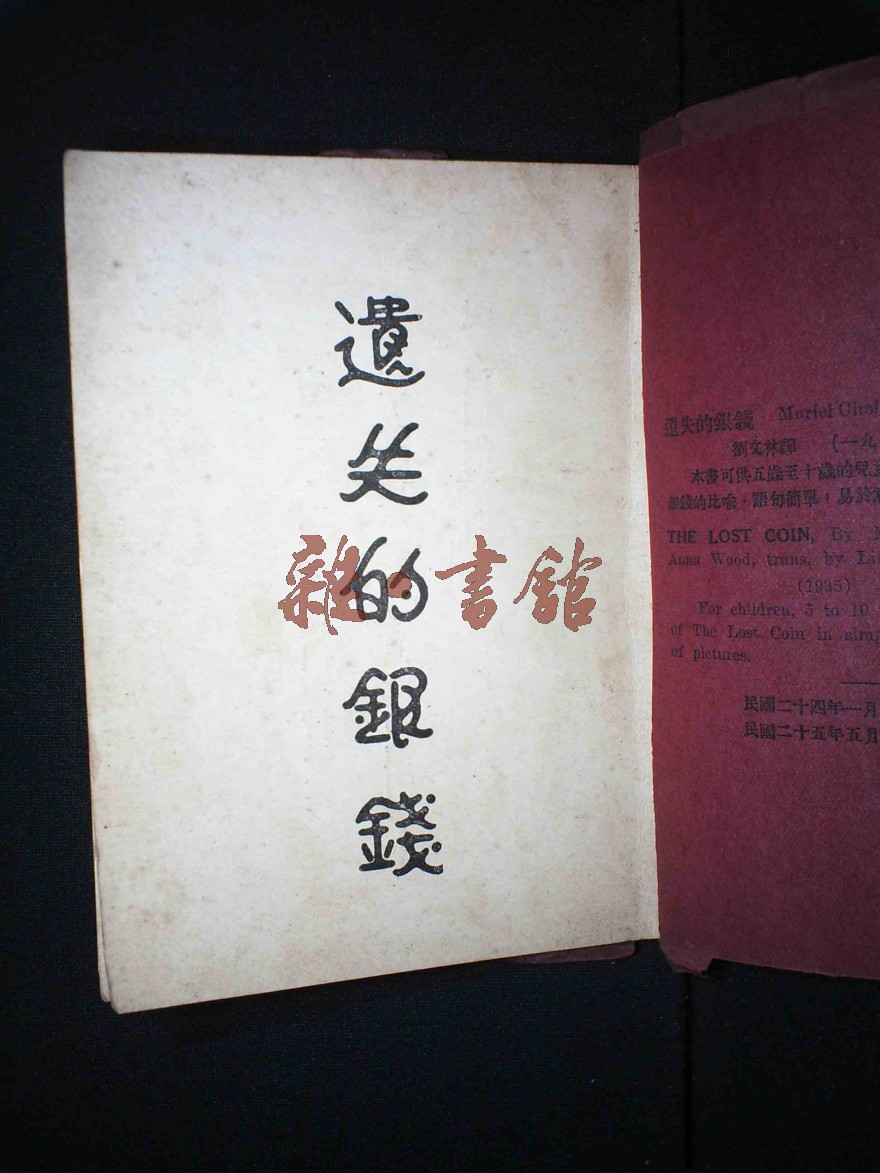 遺失的銀錢
雜·書館
遺失的銀錢 Muriel Chal
劉文林譯 (一九
本書可供五歲至十歲的兒童
銀錢的比喻,語句簡單,易於
THE LOST COIN, By
Anna Wood, trans. by
(1935)
For children, 5 to 10
of The Lost Coin in simp
of pictures.
民國二十四年一月
民國二十五年五月